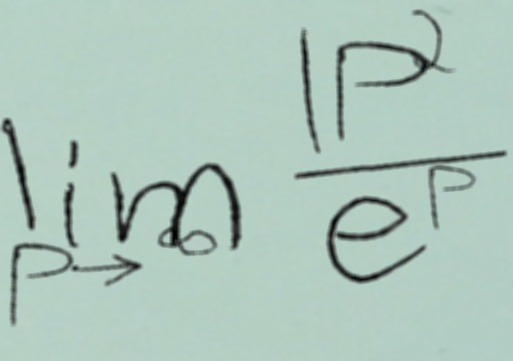 \lim_{p \to \infty} \frac{1p^2}{e^p}